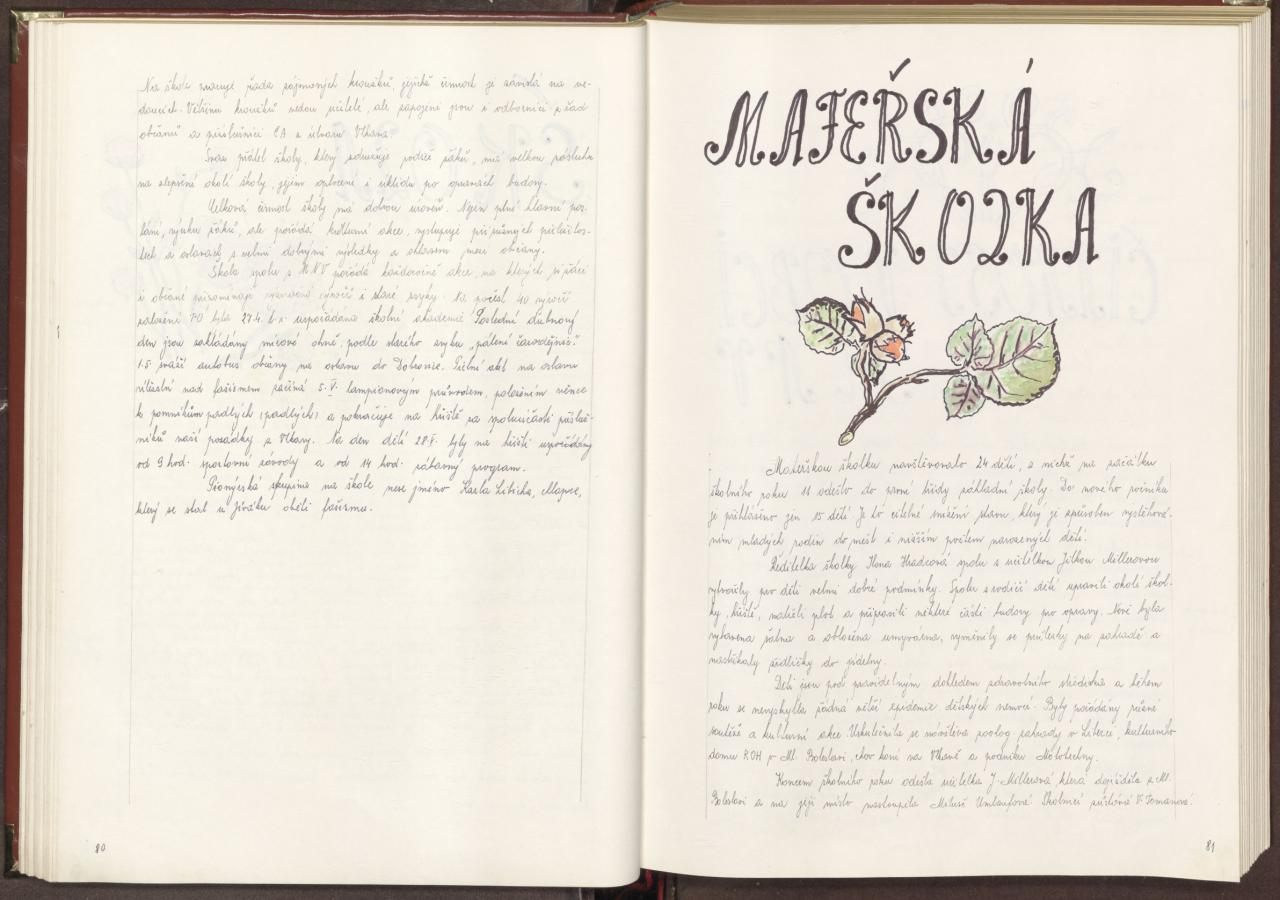 Na škole pracuje řada zájmových kroužků, jejichž činnost je závislá na ve-
doucích. Většinu kroužků vedou učitelé, ale zapojeni jsou i odborníci z řad
občanů a příslušníci ČA z útvaru Vlkava.
Svaz přátel školy, který sdružuje rodiče žáků, má velkou zásluhu
na zlepšení okolí školy, jejím oplocení i úklidu po opravách budovy.
Celková činnost školy má dobrou úroveň. Nejen plní hlavní pos-
lání, výuku žáků, ale pořádá kulturní akce, vystupuje při různých příležitos-
tech a oslavách s velmi dobrými výsledky a ohlasem mezi občany.
Škola spolu s MNV pořádá každoročně akce, na kterých si žáci
i občané připomínají významná výročí i staré zvyky. Na počest 40. výročí
založení PO byla 27.4. t.r. uspořádána školní akademie. Poslední dubnový
den jsou zakládány mírové ohně, podle starého zvyku „pálení čarodějnic".
1.5. sváží autobus občany na oslavu do Dobrovice. Pietní akt na oslavu
vítězství nad fašismem začíná 5.V. lampionovým průvodem, položením věnce
k pomníkům padlých (padlých) a pokračuje na hřišti za spoluúčasti přísluš-
níků naší posádky z Vlkavy. Na den dětí 28.V. byly na hřišti uspořádány
od 9 hod. sportovní závody a od 14 hod. zábavný program.
Pionýrská skupina na škole nese jméno Karla Libicha,
který se stal u Jiváku obětí fašizmu.
80
MATEŘSKÁ
ŠKOLKA
Mateřskou školku navštěvovalo 24 dětí, z nichž na začátku
školního roku 11 odešlo do první třídy základní školy. Do nového ročníku
je přihlášeno jen 15 dětí. Je to citelné snížení stavu, který je způsoben vystěhová-
ním mladých rodin do měst i nižším počtem narozených dětí.
Ředitelka školky Ilona Hradcová spolu s učitelkou Jitkou Millerovou
vytvořily pro děti velmi dobré podmínky. Spolu s rodiči dětí upravili okolí škol-
ky, hřiště, natřeli plot a připravili některé části budovy pro opravy. Nově byla
vybavena šatna a obložena umyvárna, vyměnily se průlezky na zahradě a
nastříkaly židličky do jídelny.
Děti jsou pod pravidelným dohledem zdravotního střediska a během
roku se nevyskytla žádná větší epidemie dětských nemocí. Byly pořádány různé
soutěže a kulturní akce. Uskutečnila se návštěva zoolog. zahrady v Liberci, kulturního
domu ROH v Ml. Boleslavi, chov koní na Vlkavě a podniku Mototechny.
Koncem školního roku odešla učitelka J. Millerová, která dojížděla z Ml.
Boleslavi a na její místo nastoupila Miluše Umlaufová. Školnicí zůstává V. Tomanová.
81